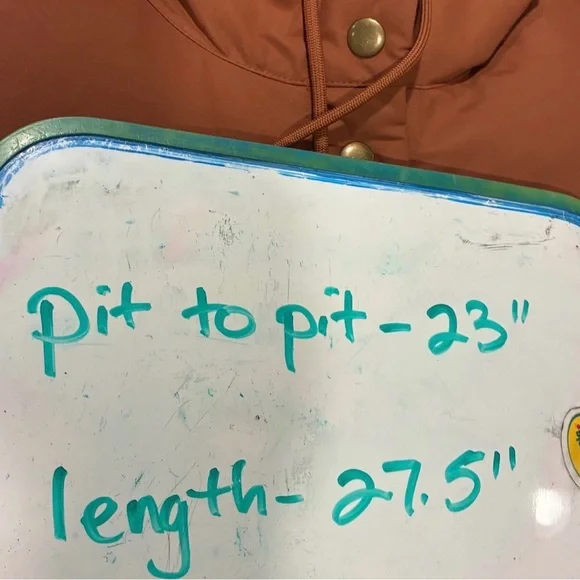 pit to pit - 23"
length - 27.5"